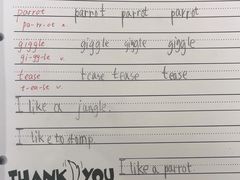 parrot parrot parrot parrot
pa-rr-ot n.
giggle giggle giggle giggle
gi-ggle v.
tease tease tease tease
t-ea-se v.
I like a jungle.
I like to stomp
I like a parrot
THANK YOU